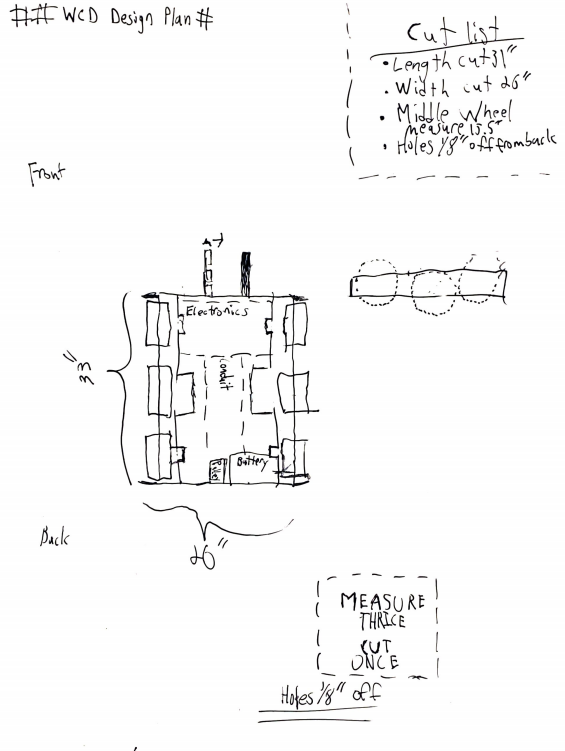 ## WCD Design Plan #
Cut list
• Length cut 31"
• Width cut 26"
• Middle Wheel
measure 15.5"
• Holes 1/8" off from back
Front
Electronics
Conduit
31"
Battery
26"
Back
MEASURE
THRICE
CUT
ONCE
Holes 1/8" off